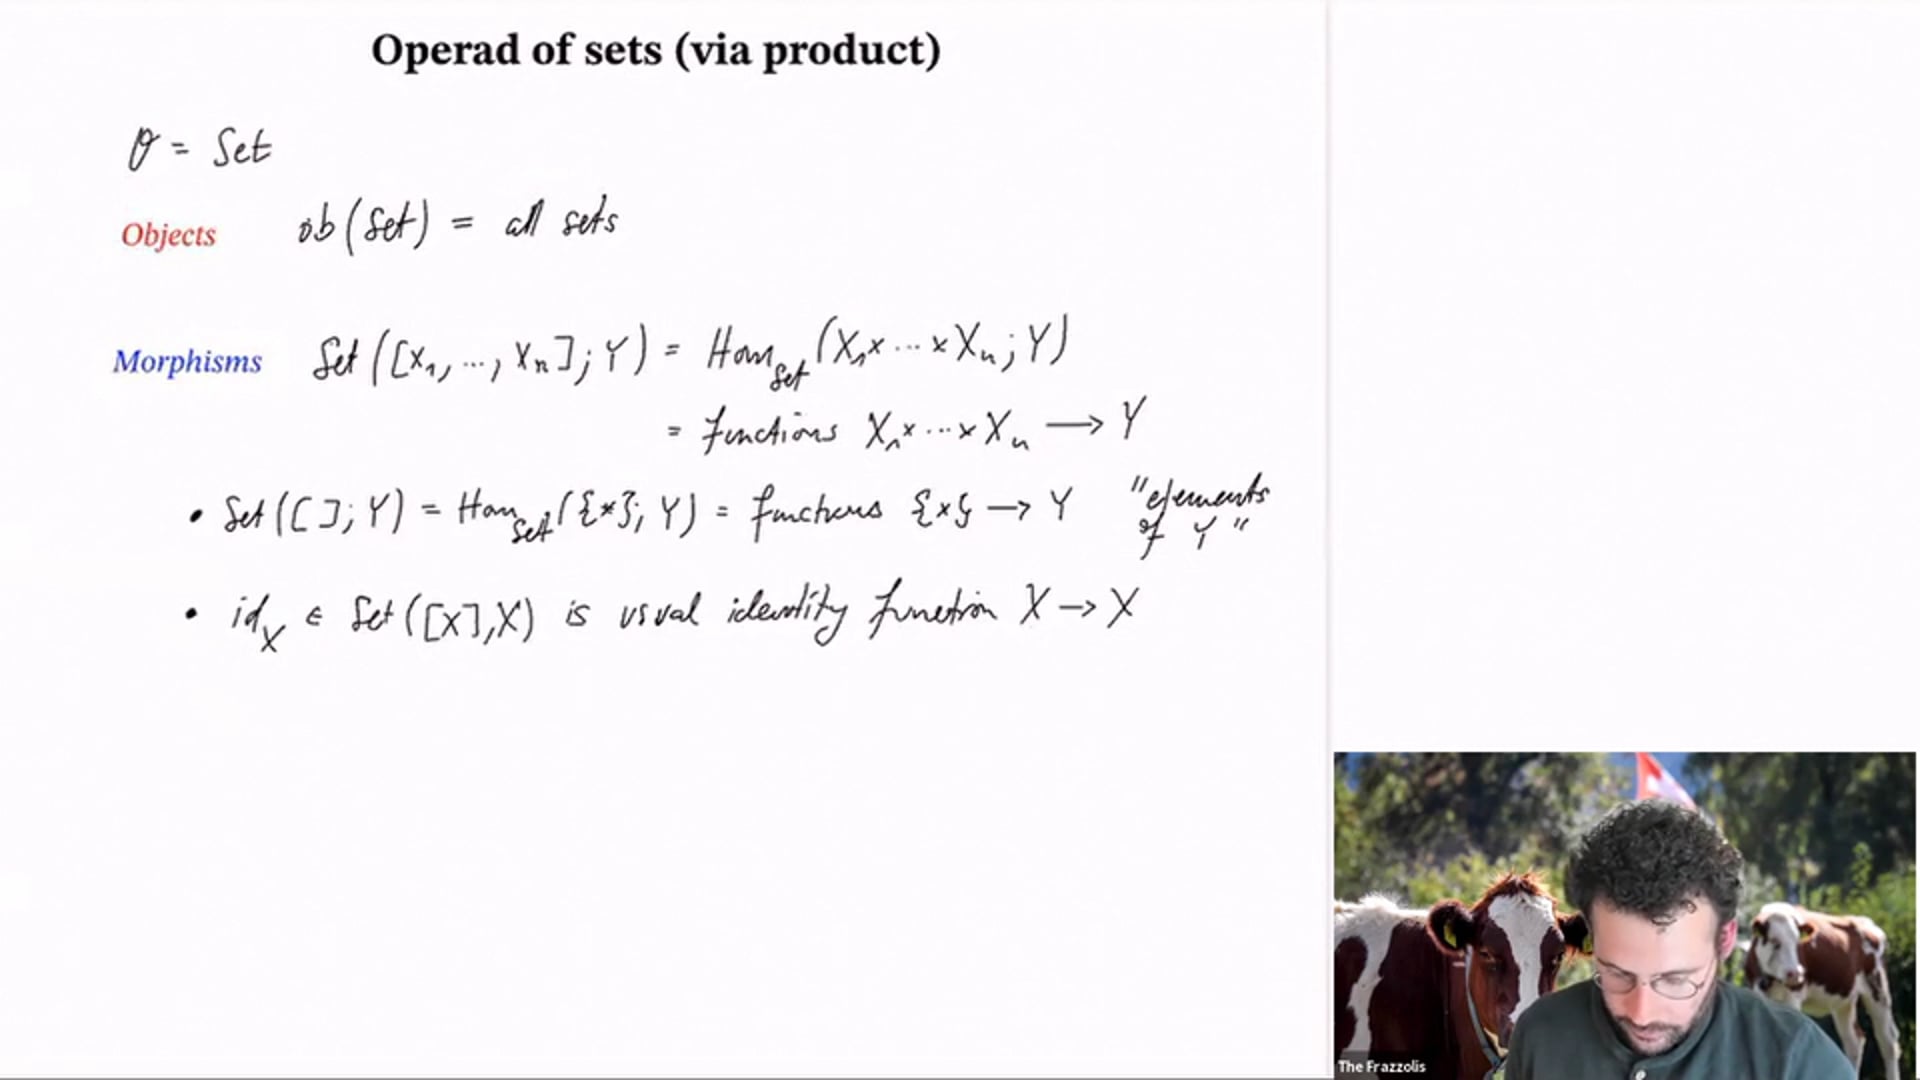 Operad of sets (via product)
𝒪 = Set
Objects ob(Set) = all sets
Morphisms Set([X₁, ..., Xₙ]; Y) = Hom_Set(X₁ × ··· × Xₙ; Y)
= functions X₁ × ··· × Xₙ ⟶ Y
• Set([ ]; Y) = Hom_Set({*}; Y) = functions {*} → Y "elements of Y"
• id_X ∈ Set([X], X) is usual identity function X → X
The Frazzolis